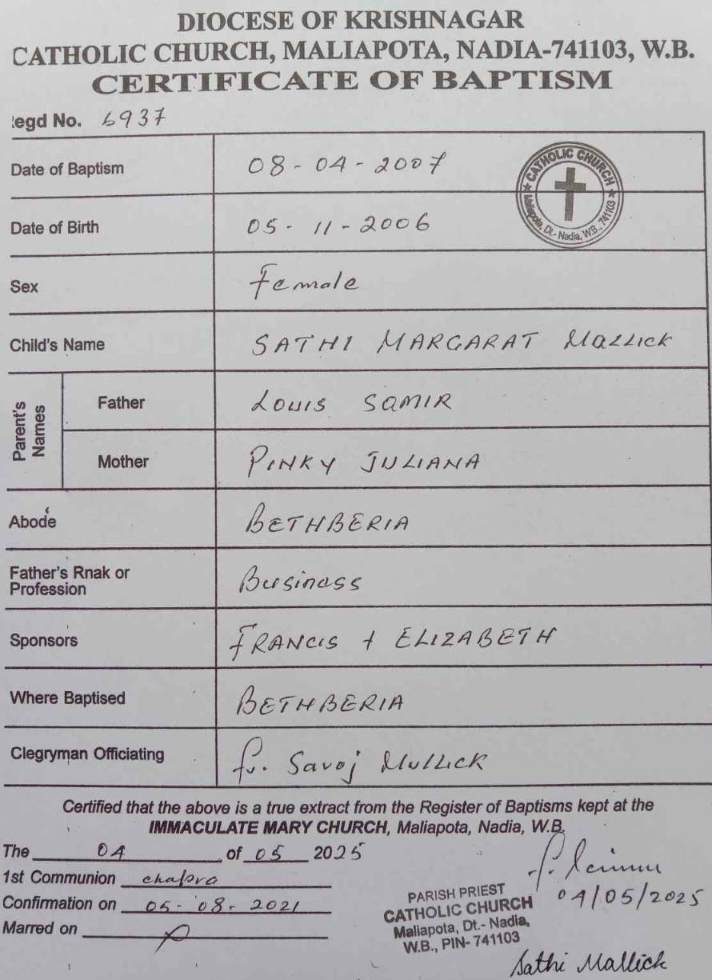 DIOCESE OF KRISHNAGAR
CATHOLIC CHURCH, MALIAPOTA, NADIA-741103, W.B.
CERTIFICATE OF BAPTISM
egd No. 6937
Date of Baptism 08-04-2007
CATHOLIC CHURCH
Maliapota, Dt.- Nadia, W.B., 741103
Date of Birth 05-11-2006
Sex Female
Child's Name SATHI MARGARAT Mallick
Parent's Names
Father Louis SAMIR
Mother PINKY JULIANA
Abode BETHBERIA
Father's Rnak or Profession Business
Sponsors FRANCIS + ELIZABETH
Where Baptised BETHBERIA
Clegryman Officiating fr. Saroj Mullick
Certified that the above is a true extract from the Register of Baptisms kept at the
IMMACULATE MARY CHURCH, Maliapota, Nadia, W.B.
The 04 of 05 2025
1st Communion chapra
Confirmation on 05-08-2021
Marred on
04/05/2025
PARISH PRIEST
CATHOLIC CHURCH
Maliapota, Dt.- Nadia,
W.B., PIN- 741103
Sathi Mallick